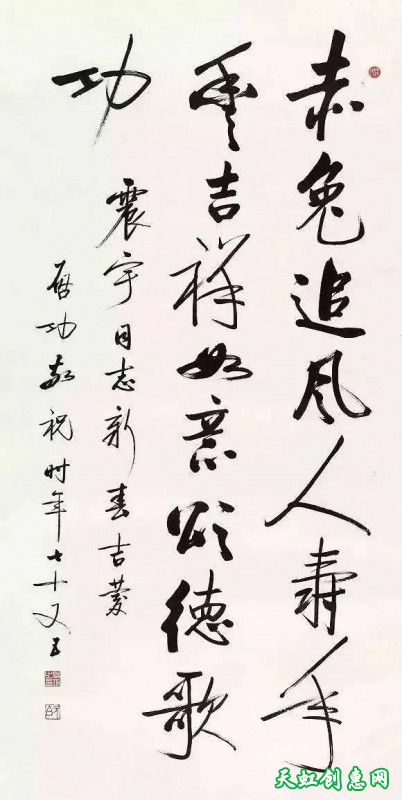 赤兔追风人寿年
丰吉祥如意颂德歌
功
震宇同志新春吉庆
启功敬祝时年七十又五
天虹创惠网